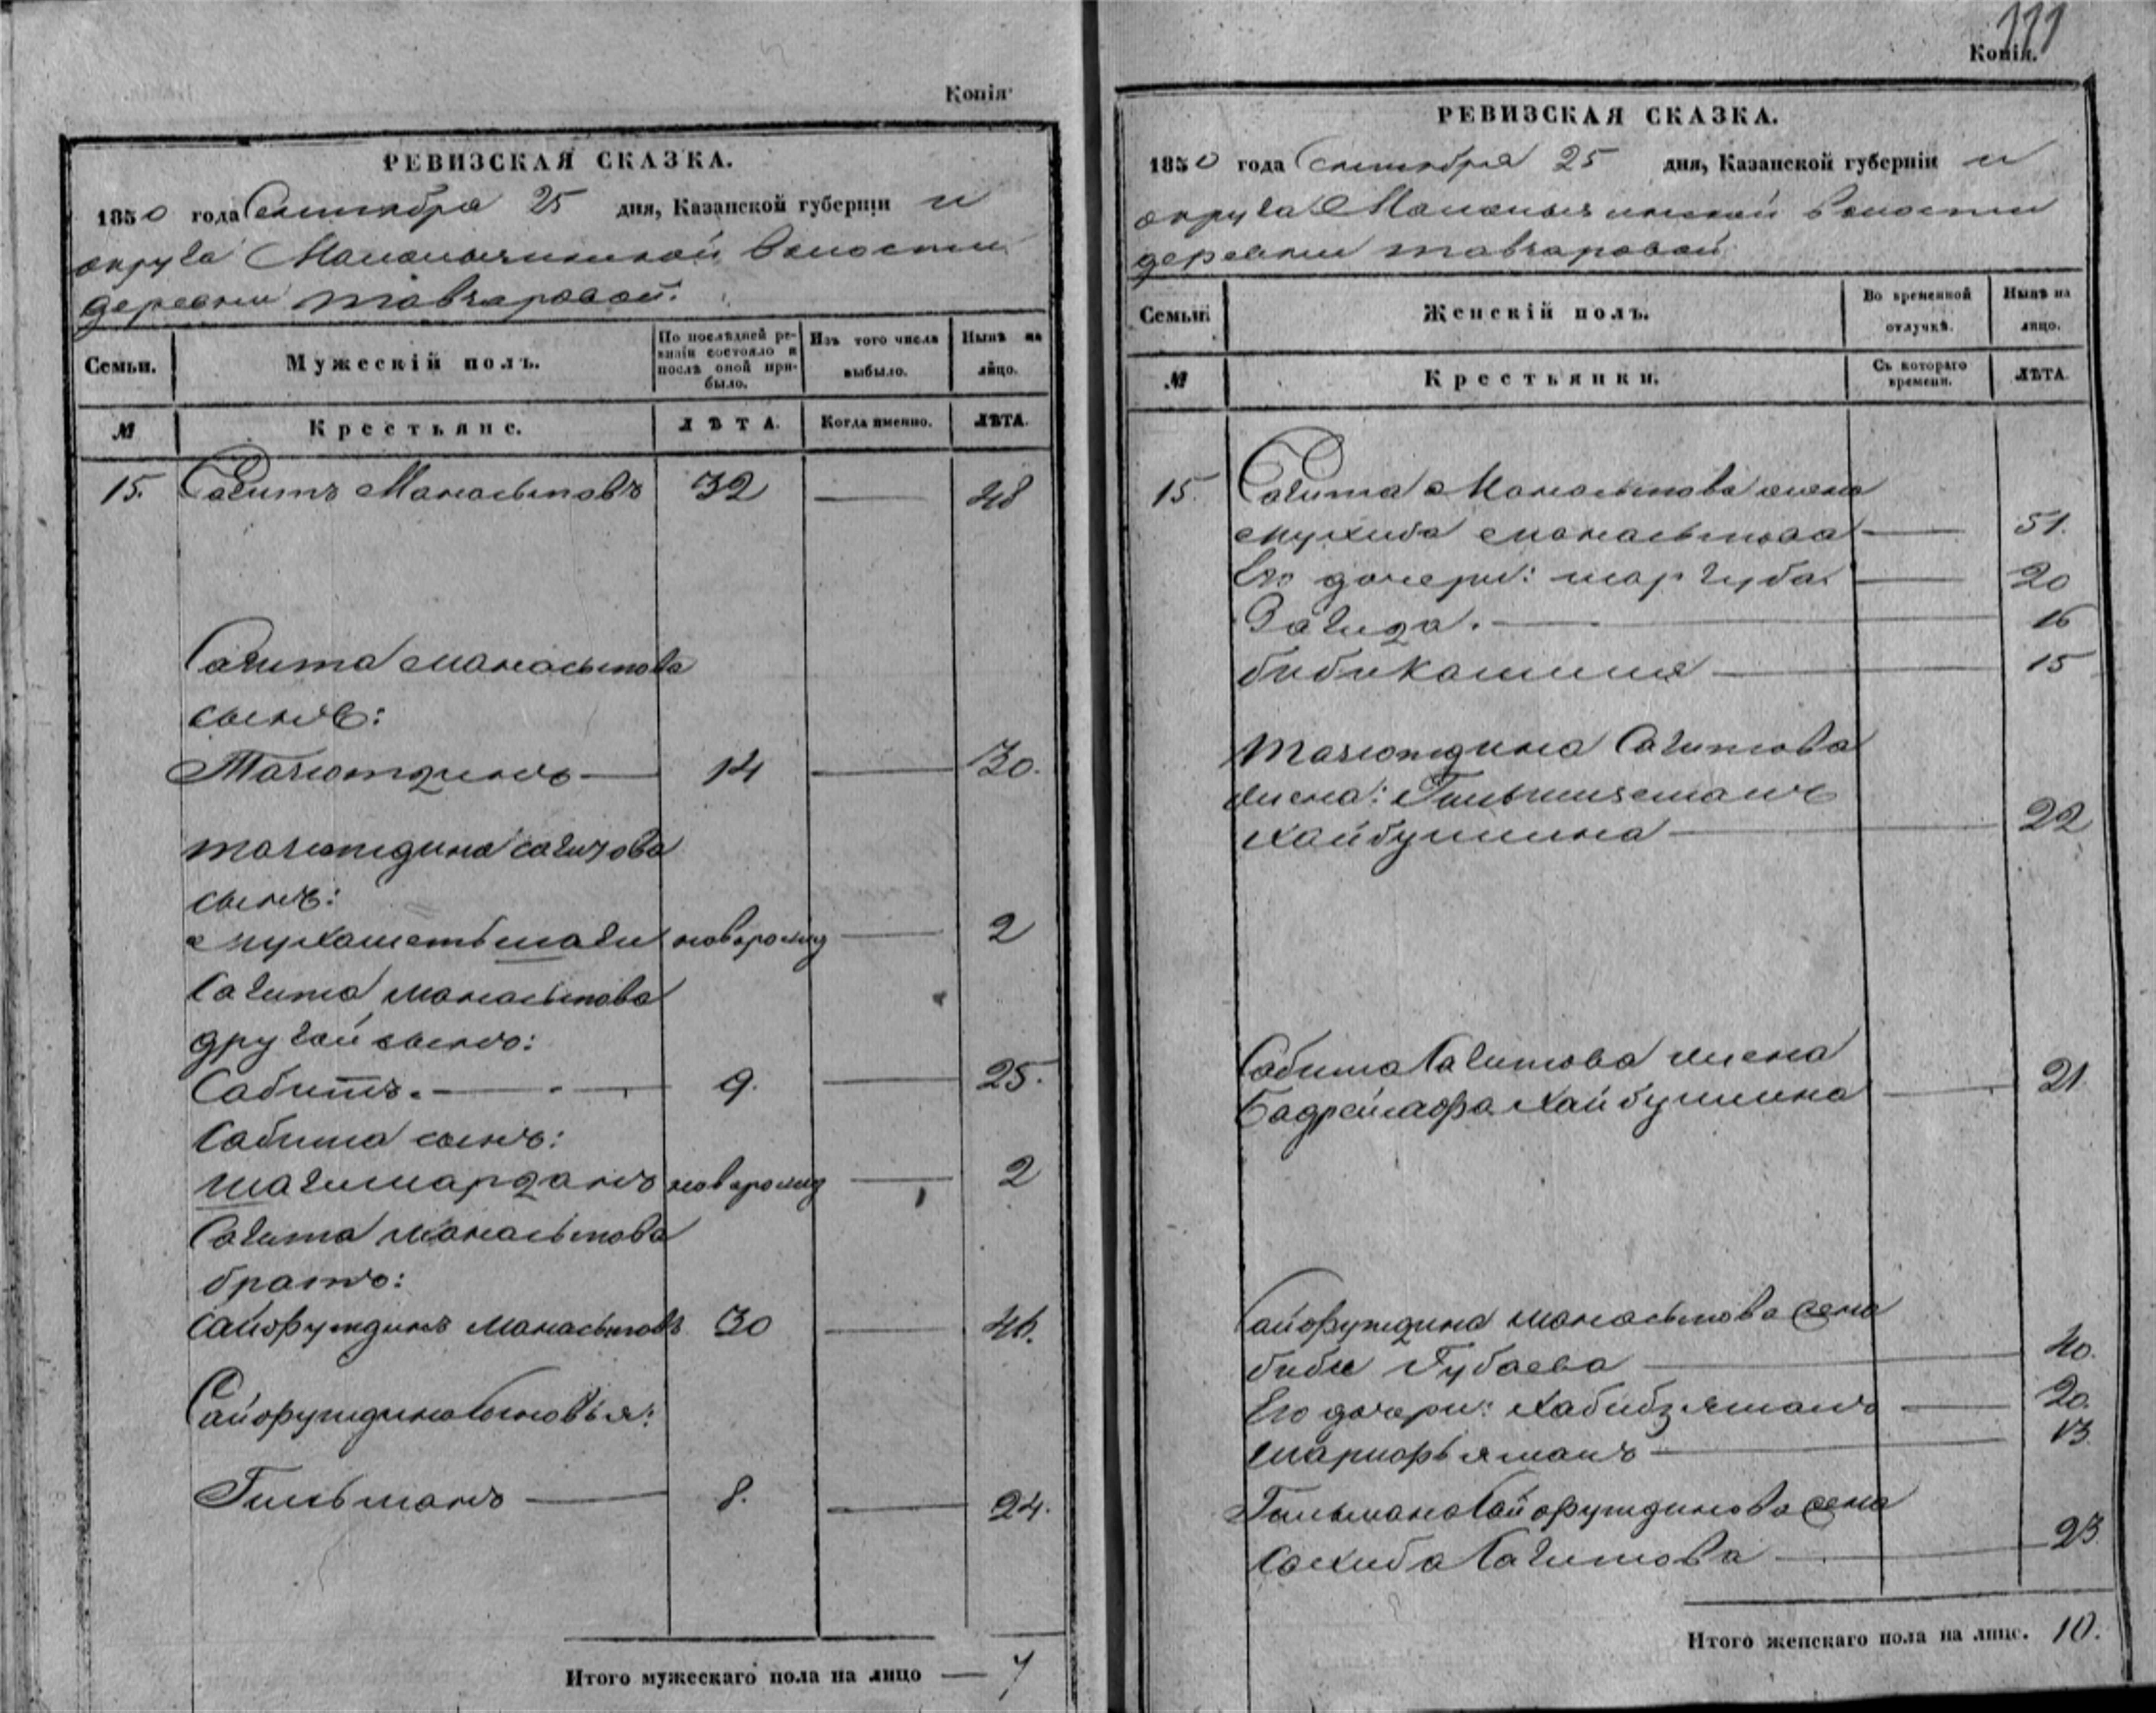 Копія
РЕВИЗСКАЯ СКАЗКА.
1850 года Сентября 25 дня, Казанской губерніи и
округа Мамалыч волости
деревни тавчаровой.
Семьи. Мужескій полъ. По послѣдней ревизіи состояло и послѣ оной прибыло. Изъ того числа выбыло. Нынѣ на лицо.
№ Крестьяне. ЛѢТА. Когда именно. ЛѢТА.
15. Сагитъ Манасыповъ 32 — 48
Сагита Манасыпова
сынъ:
Тазютдинъ — 14 — 30.
тазютдина сагитова
сынъ:
мухаметьшаги новорожд — 2
Сагита манасыпова
другой сынъ:
Сабитъ. — 9. — 25.
Сабита сынъ:
шагимарданъ новорожд — 2
Сагита манасыпова
братъ:
сайфутдинъ Манасыповъ 30 — 46.
Сайфутдина сыновья:
Гильманъ — 8. — 24.
Итого мужескаго пола на лицо — 7
111
Копія.
РЕВИЗСКАЯ СКАЗКА.
1850 года Сентября 25 дня, Казанской губерніи и
округа волости
деревни тавчаровой
Семьи. Женскій полъ. Во временной отлучкѣ. Нынѣ на лицо.
№ Крестьянки. Съ котораго времени. ЛѢТА.
15. Сагита Манасыпова жена
мухиба манасыпова — 51.
Его дочери: шаргуба — 20
Загида. — 16
бибикамиля — 15
Тазютдина Сагитова
жена:
Хайбуллина — 22
Сабита Сагитова жена
Бадреизафа Хайбуллина — 21.
Сайфутдина манасыпова жена
биби Губаева — 40.
Его дочери: Хабибзямалъ — 20.
шарифьямалъ — 13.
Гильмана Сайфутдинова жена
Сахиба Сагитова — 23.
Итого женскаго пола на лице. 10.